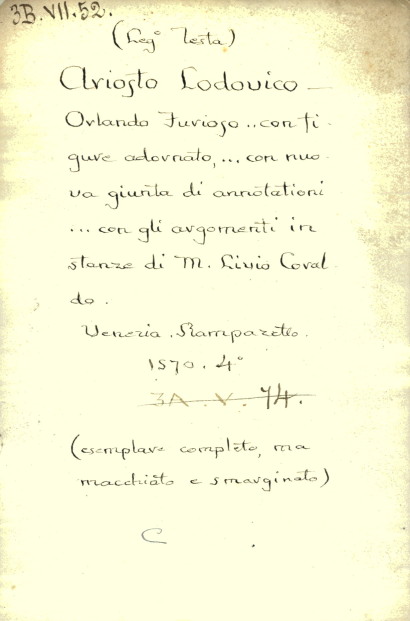 3B.VII.52.
(Leg° Testa)
Ariosto Lodovico —
Orlando Furioso .. con fi-
gure adornato, ... con nuo-
va giunta di annotationi
... con gli argomenti in
stanze di M. Livio Coral-
do.
Venezia. Rampazetto.
1570. 4°
3A.V. 74.
(esemplare completo, ma
macchiato e smarginato)
C